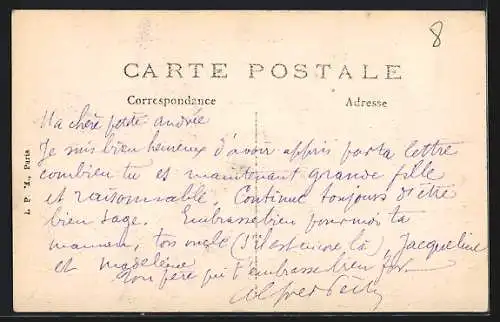 8
CARTE POSTALE
Correspondance
Adresse
Ma chère petite andrée
Je suis bien heureux d'avoir appris par ta lettre
combien tu es maintenant grande fille
et raisonnable. Continue toujours d'être
bien sage. Embrasse bien pour moi ta
maman, ton oncle (s'il est encore là), Jacqueline
et madeleine
Ton père qui t'embrasse bien fort
Alfred
J. P. Paris